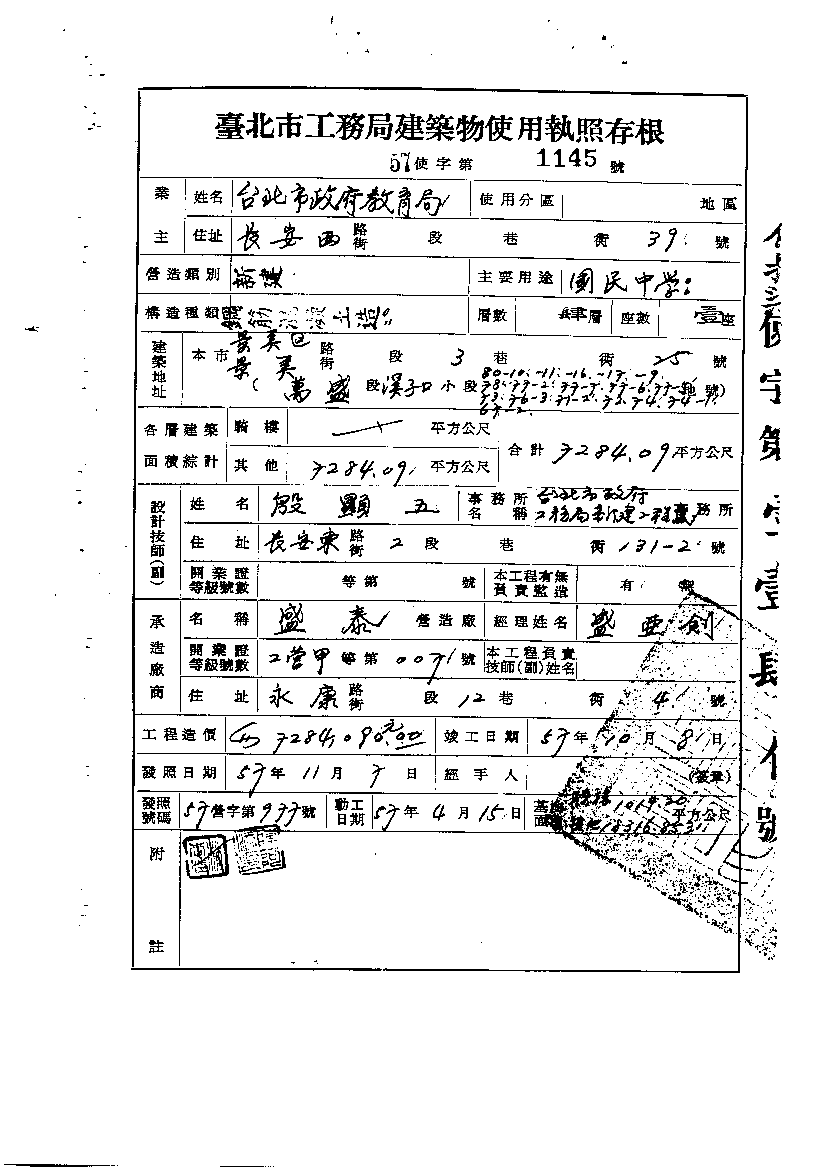 臺北市工務局建築物使用執照存根
57使字第 1145 號
業主 姓名 台北市政府教育局 使用分區 地區
住址 長安西 路街 段 巷 衖 39 號
營造類別 新建 主要用途 國民中学
構造種類 鋼筋混凝土造 層數 肆層 座數 壹座
建築地址 本市 景美區 景美 路街 段 3 巷 衖 25 號
(萬盛 段 溪子口 小段 地號)
各層建築面積綜計 騎樓 平方公尺 合計 7284.09 平方公尺
其他 7284.09 平方公尺
設計技師(副) 姓名 殷顯五 事務所名稱 台北市政府工務局新建工程 事務所
住址 長安東 路街 2 段 巷 衖 131-2 號
開業證等級號數 等第 號 本工程有無負責監造 有 無
承造廠商 名稱 盛泰 營造廠 經理姓名 盛亞創
開業證等級號數 工營甲 等第 0071 號 本工程負責技師(副)姓名
住址 永康 路街 段 12 巷 衖 4 號
工程造價 7284,090.00 竣工日期 57年10月8日
發照日期 57年11月7日 經手人 (簽章)
發照號碼 57營字第977號 動工日期 57年4月15日 基地面積 平方公尺
附註
使字第壹壹肆伍號